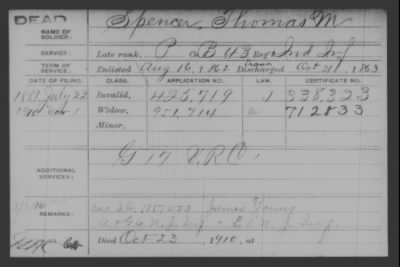 DEAD
NAME OF SOLDIER:
Spencer, Thomas M
SERVICE:
Late rank, P Co. B 43 Reg't Ind Inf
TERM OF SERVICE
Enlisted Aug 16, 1862 Discharged Oct 31, 1863
DATE OF FILING. CLASS. APPLICATION NO. LAW. CERTIFICATE NO.
1881 July 22 Invalid, 425,719 1 338,323
1910 Nov 1 Widow, 951,714 a 712833
Minor,
G 17 V.R.C.
ADDITIONAL SERVICES:
REMARKS:
James Young
N. J. Inf - E 1 N. J. Inf
Died Oct 23, 1910, at